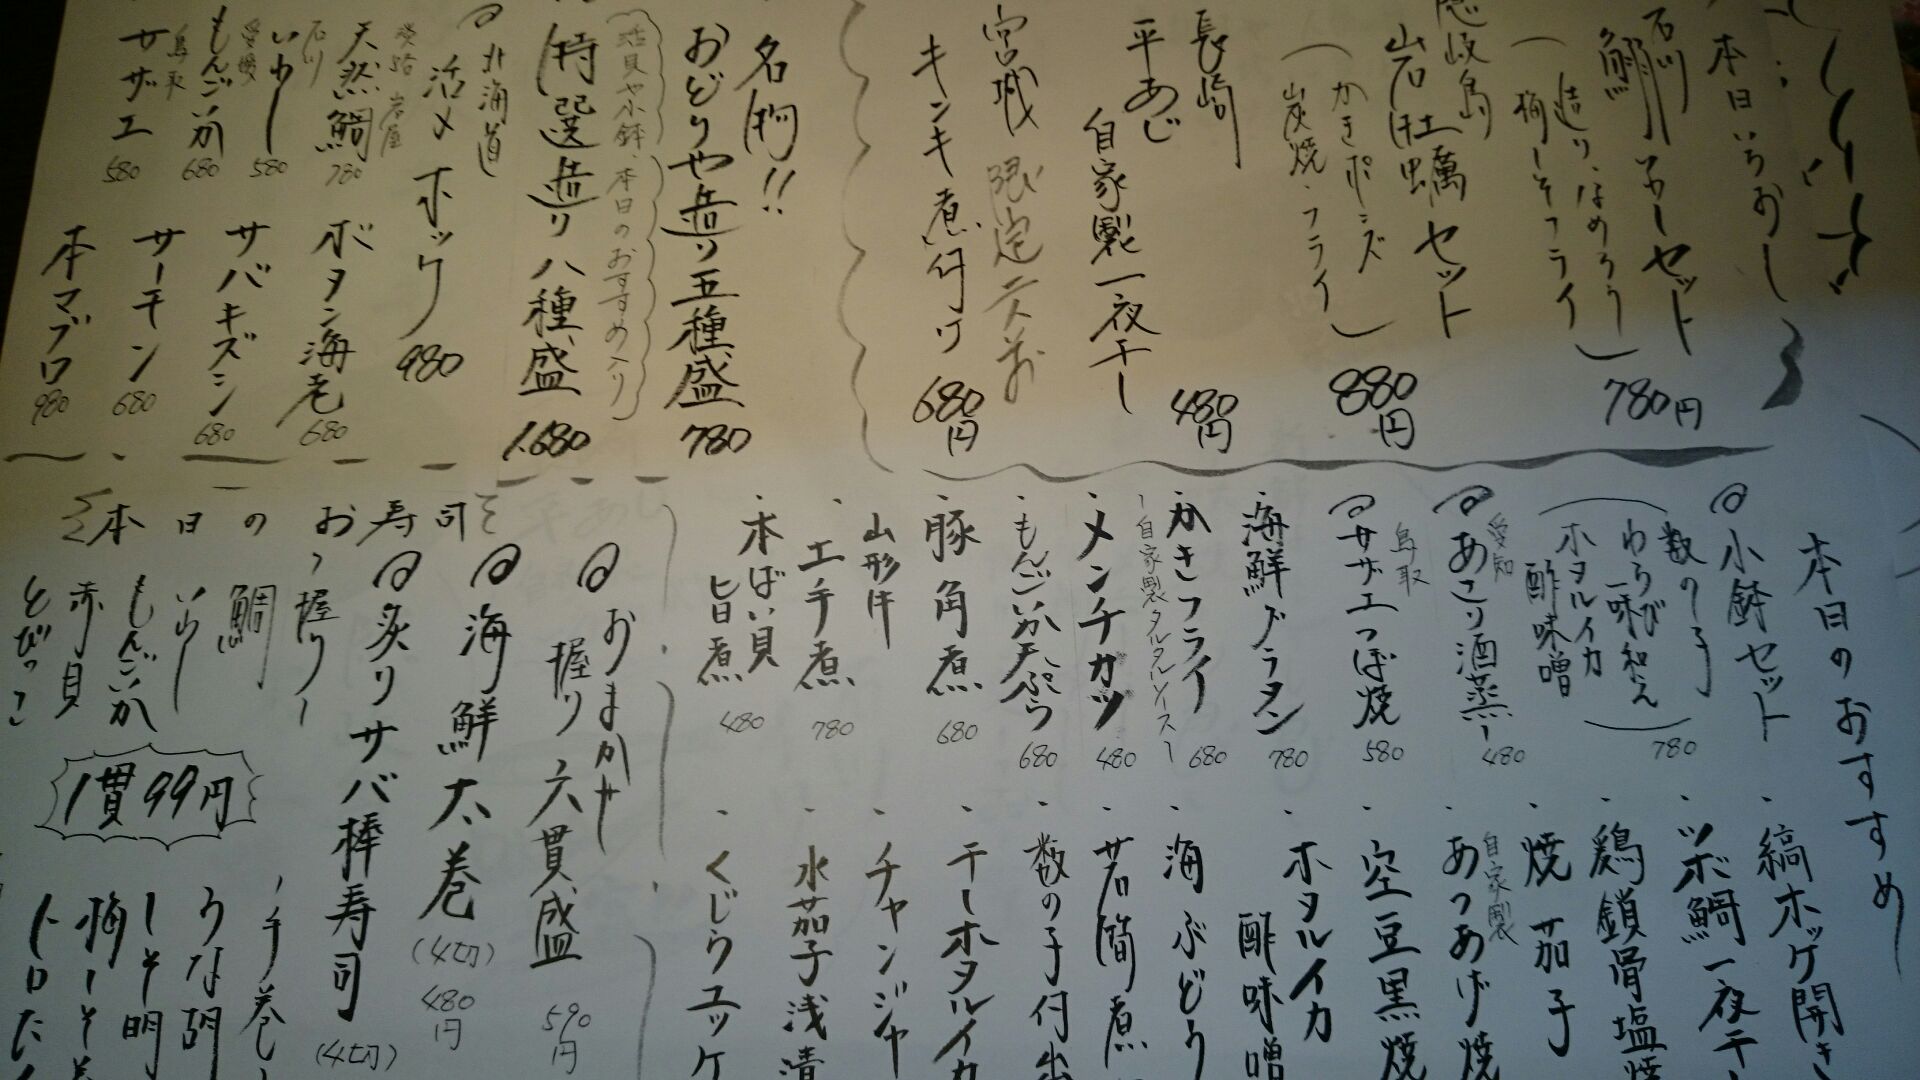 本日いちおし
石川
鰤いろいろセット
(造り・ほめろう
梅しそフライ)
780円
隠岐島
岩牡蠣セット
(かきポンズ
炭焼・フライ)
880円
長崎
平あじ
自家製一夜干し
480円
宮城 限定
キンキ煮付け
680円
名物!!
おどりや造り五種盛
780
(活貝や小鉢、本日のおすすめ入り)
特選造り八種盛
1,680
北海道
活〆ホッケ
980
淡路 岩屋
天然鯛
780
石川
いわし
580
愛媛
もんごいか
680
鳥取
サザエ
580
ボタン海老
680
サバキズシ
680
サーモン
680
本マグロ
980
本日のおすすめ
小鉢セット
数の子
わらび一味和え
ホタルイカ酢味噌
780
愛知
あさり酒蒸し
480
鳥取
サザエつぼ焼
580
海鮮グラタン
780
かきフライ
自家製タルタルソース
680
メンチカツ
480
もんごいか天ぷら
680
豚角煮
680
山形牛
エ手煮
780
本ばい貝
旨煮
480
縞ホッケ開き
ツボ鯛一夜干
鶏鎖骨塩焼
焼茄子
自家製
あつあげ焼
空豆黒焼
ホタルイカ
酢味噌
海ぶどう
若筒煮
数の子付出
干しホタルイカ
チャンジャ
水茄子浅漬
くじらユッケ
おまかせ
握り六貫盛
590円
海鮮太巻
(4切)
480円
炙りサバ棒寿司
(4切)
本日のお寿司
握り
鯛
いわし
もんごいか
赤貝
とびっこ
1貫99円
手巻
うな胡
しそ明
梅しそ
トロたく